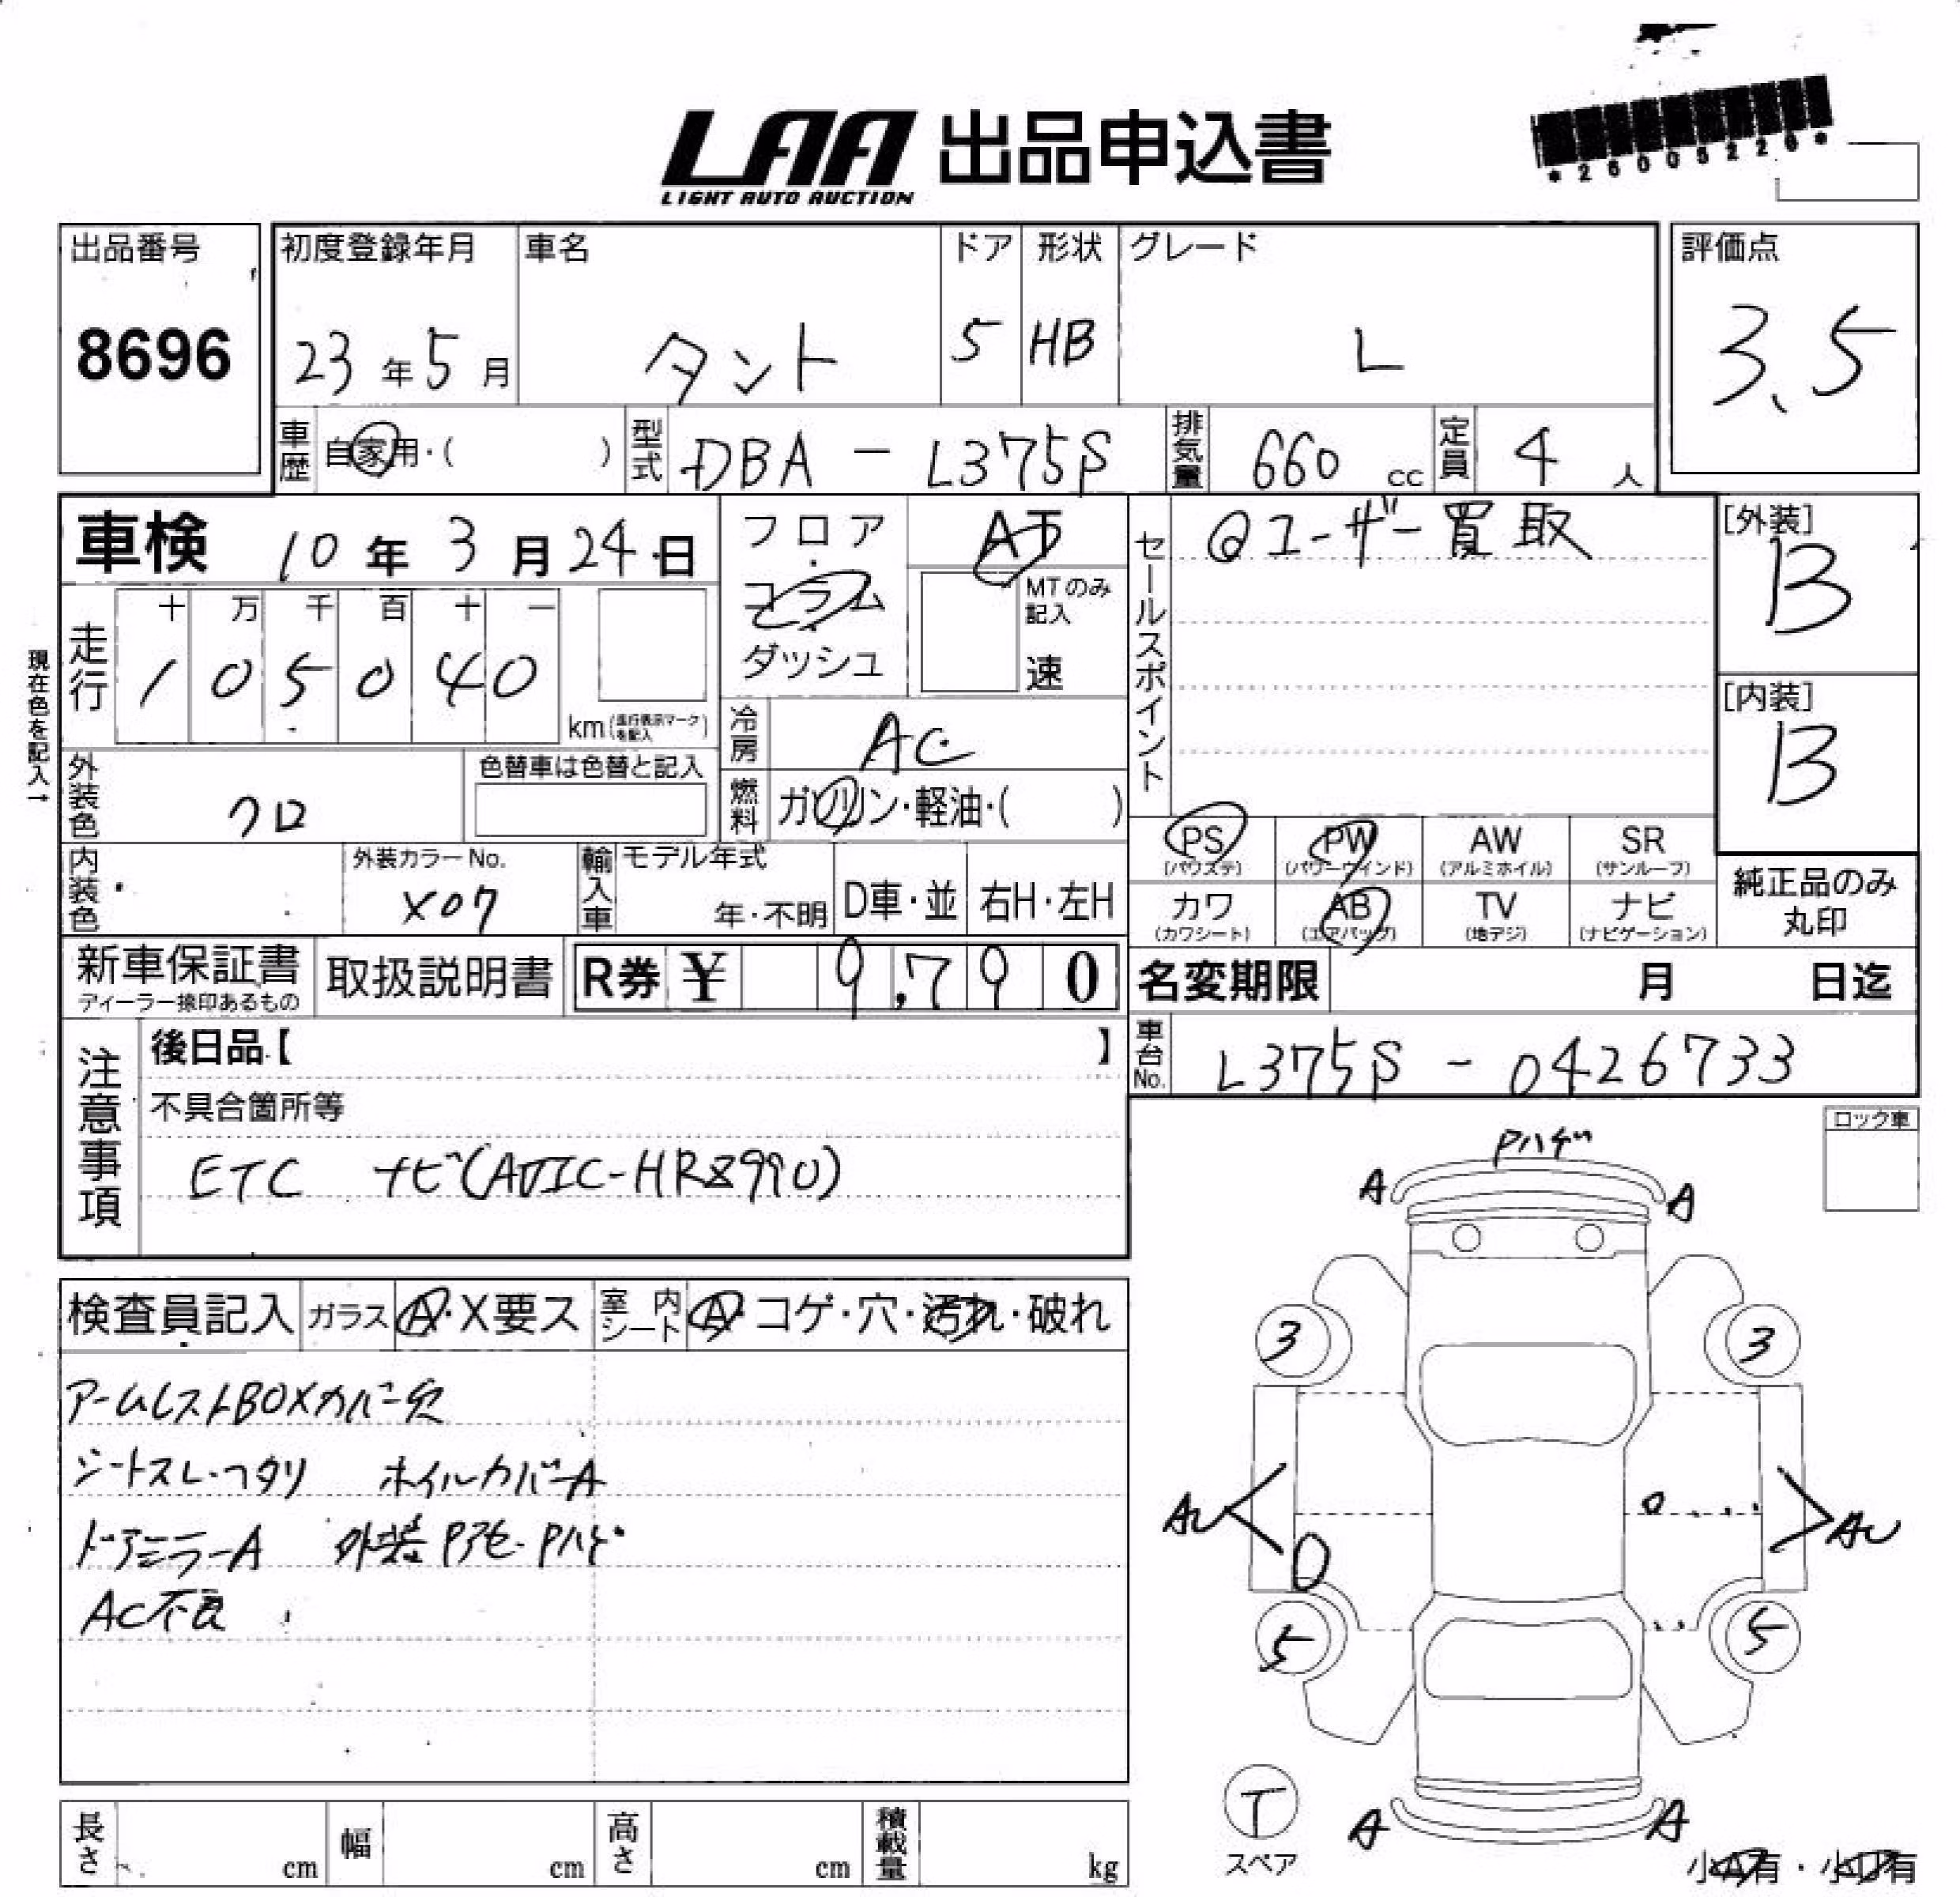 LAA 出品申込書
LIGHT AUTO AUCTION
*26005226*
出品番号
8696
初度登録年月
23年5月
車名
タント
ドア
5
形状
HB
グレード
L
評価点
3.5
車歴 自家用・( )
型式 DBA-L375S
排気量 660 cc
定員 4 人
車検 10年3月24日
現在色を記入→
走行
十 万 千 百 十 一
1 0 5 0 4 0
km(走行表示マークを記入)
フロア・コラム・ダッシュ
AT
MTのみ記入
速
冷房 AC
燃料 ガソリン・軽油・( )
セールスポイント
@ユーザー買取
[外装]
B
[内装]
B
外装色 クロ
色替車は色替と記入
内装色
外装カラーNo.
X07
輸入車
モデル年式
年・不明
D車・並
右H・左H
PS (パワステ)
PW (パワーウィンド)
AW (アルミホイル)
SR (サンルーフ)
カワ (カワシート)
AB (エアバッグ)
TV (地デジ)
ナビ (ナビゲーション)
純正品のみ丸印
新車保証書
ディーラー捺印あるもの
取扱説明書
R券 ¥ 9,790
名変期限 月 日迄
車台No. L375S-0426733
注意事項
後日品【 】
不具合箇所等
ETC ナビ(AVIC-HRZ990)
ロック車
検査員記入
ガラス A・X要ス
室内シート A・コゲ・穴・汚れ・破れ
アームレストBOXカバー欠
シートスレ・ヘタリ ホイルカバーA
ドアミラーA 外装Pアセ・Pハゲ
AC不良
Pハゲ
A A
3 3
AU AU
5 5
A A
T
スペア
小A有・小U有
長さ cm
幅 cm
高さ cm
積載量 kg